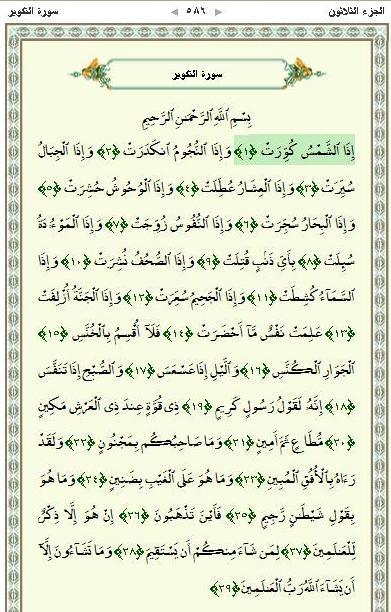 الجزء الثلاثون ٥٨٦ سورة التكوير
سورة التكوير
بِسْمِ ٱللَّهِ ٱلرَّحْمَٰنِ ٱلرَّحِيمِ
إِذَا ٱلشَّمْسُ كُوِّرَتْ ﴿١﴾ وَإِذَا ٱلنُّجُومُ ٱنكَدَرَتْ ﴿٢﴾ وَإِذَا ٱلْجِبَالُ
سُيِّرَتْ ﴿٣﴾ وَإِذَا ٱلْعِشَارُ عُطِّلَتْ ﴿٤﴾ وَإِذَا ٱلْوُحُوشُ حُشِرَتْ ﴿٥﴾
وَإِذَا ٱلْبِحَارُ سُجِّرَتْ ﴿٦﴾ وَإِذَا ٱلنُّفُوسُ زُوِّجَتْ ﴿٧﴾ وَإِذَا ٱلْمَوْءُۥدَةُ
سُئِلَتْ ﴿٨﴾ بِأَىِّ ذَنۢبٍ قُتِلَتْ ﴿٩﴾ وَإِذَا ٱلصُّحُفُ نُشِرَتْ ﴿١٠﴾ وَإِذَا
ٱلسَّمَآءُ كُشِطَتْ ﴿١١﴾ وَإِذَا ٱلْجَحِيمُ سُعِّرَتْ ﴿١٢﴾ وَإِذَا ٱلْجَنَّةُ أُزْلِفَتْ
﴿١٣﴾ عَلِمَتْ نَفْسٌ مَّآ أَحْضَرَتْ ﴿١٤﴾ فَلَآ أُقْسِمُ بِٱلْخُنَّسِ ﴿١٥﴾
ٱلْجَوَارِ ٱلْكُنَّسِ ﴿١٦﴾ وَٱلَّيْلِ إِذَا عَسْعَسَ ﴿١٧﴾ وَٱلصُّبْحِ إِذَا تَنَفَّسَ
﴿١٨﴾ إِنَّهُۥ لَقَوْلُ رَسُولٍ كَرِيمٍ ﴿١٩﴾ ذِى قُوَّةٍ عِندَ ذِى ٱلْعَرْشِ مَكِينٍ
﴿٢٠﴾ مُّطَاعٍ ثَمَّ أَمِينٍ ﴿٢١﴾ وَمَا صَاحِبُكُم بِمَجْنُونٍ ﴿٢٢﴾ وَلَقَدْ
رَءَاهُ بِٱلْأُفُقِ ٱلْمُبِينِ ﴿٢٣﴾ وَمَا هُوَ عَلَى ٱلْغَيْبِ بِضَنِينٍ ﴿٢٤﴾ وَمَا هُوَ
بِقَوْلِ شَيْطَٰنٍ رَّجِيمٍ ﴿٢٥﴾ فَأَيْنَ تَذْهَبُونَ ﴿٢٦﴾ إِنْ هُوَ إِلَّا ذِكْرٌ
لِّلْعَٰلَمِينَ ﴿٢٧﴾ لِمَن شَآءَ مِنكُمْ أَن يَسْتَقِيمَ ﴿٢٨﴾ وَمَا تَشَآءُونَ إِلَّآ
أَن يَشَآءَ ٱللَّهُ رَبُّ ٱلْعَٰلَمِينَ ﴿٢٩﴾